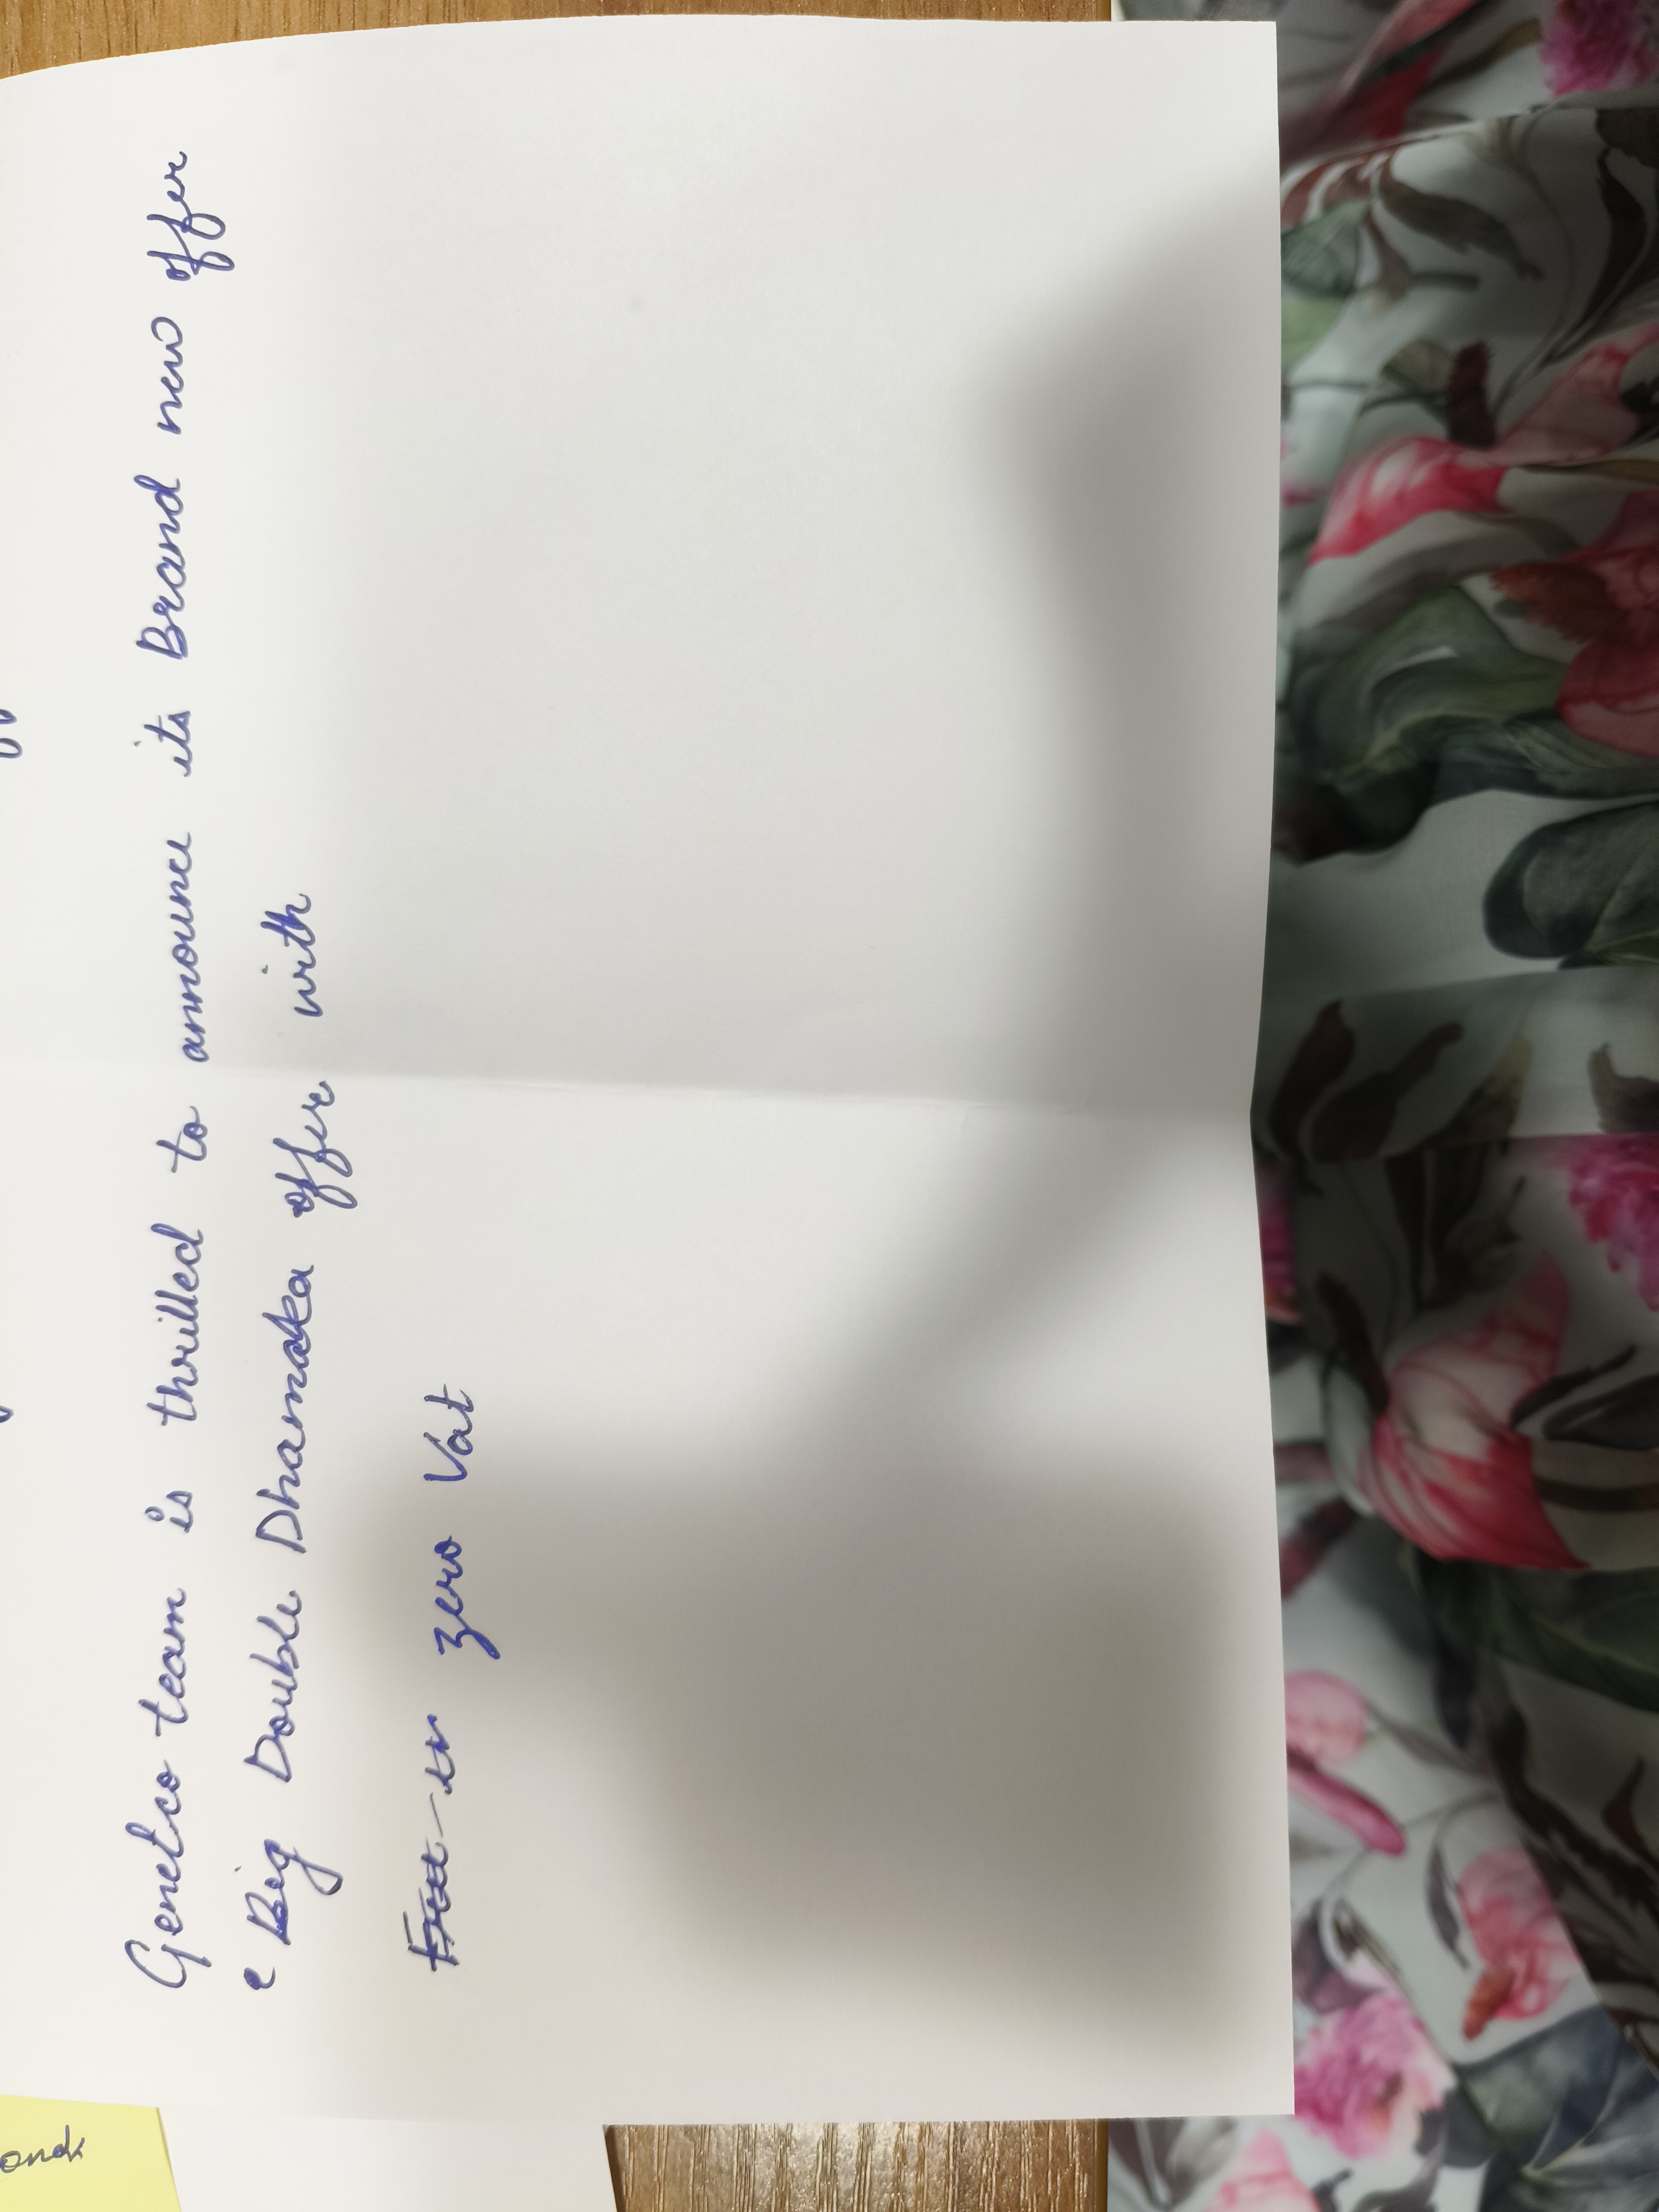 Genetco team is thrilled to announce its Brand new offer
' Big Double Dhamaka offer with
zero Vat